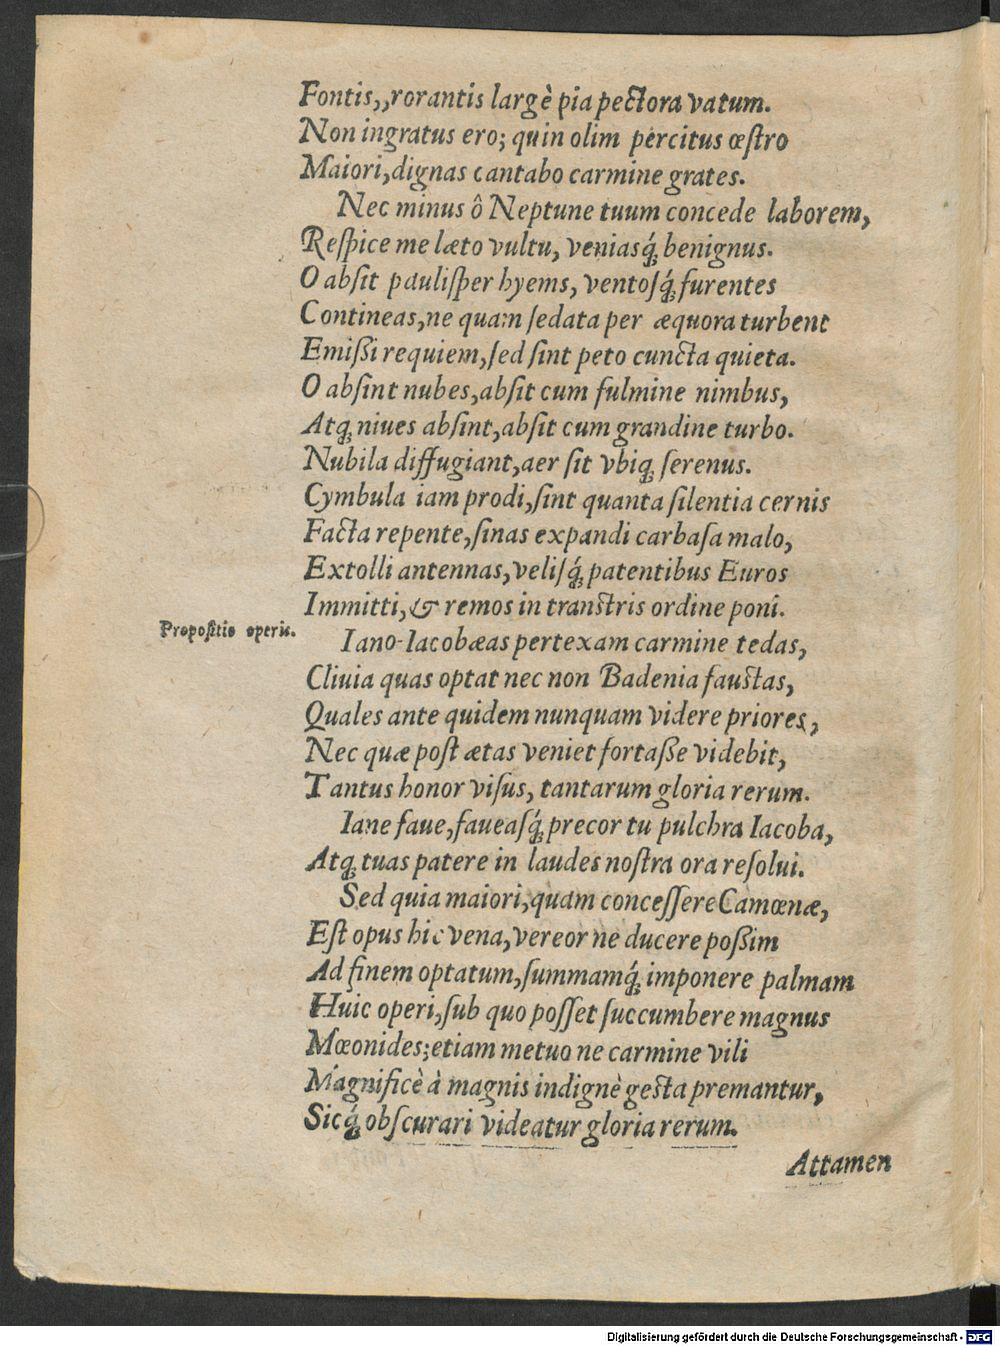 Fontis,,rorantis largè pia pectora vatum.
Non ingratus ero; quin olim percitus œſtro
Maiori,dignas cantabo carmine grates.
Nec minus ô Neptune tuum concede laborem,
Reſpice me læto vultu, veniasq́; benignus.
O abſit pauliſper hyems, ventoſq́; furentes
Contineas,ne quam ſedata per æquora turbent
Emißi requiem,ſed ſint peto cuncta quieta.
O abſint nubes,abſit cum fulmine nimbus,
Atq; niues abſint,abſit cum grandine turbo.
Nubila diffugiant,aer ſit vbiq; ſerenus.
Cymbula iam prodi,ſint quanta ſilentia cernis
Facta repente,ſinas expandi carbaſa malo,
Extolli antennas,veliſq́; patentibus Euros
Immitti,& remos in tranſtris ordine poni.
Propoſitio operis.
Iano-Iacobæas pertexam carmine tedas,
Cliuia quas optat nec non Badenia fauſtas,
Quales ante quidem nunquam videre priores,
Nec quæ poſt ætas veniet fortaße videbit,
Tantus honor viſus, tantarum gloria rerum.
Iane faue,faueaſq́; precor tu pulchra Iacoba,
Atq; tuas patere in laudes noſtra ora reſolui.
Sed quia maiori,quàm conceſſere Camœnæ,
Eſt opus hic vena,vereor ne ducere poßim
Ad finem optatum,ſummamq́; imponere palmam
Huic operi,ſub quo poſſet ſuccumbere magnus
Mœonides;etiam metuo ne carmine vili
Magnificè à magnis indignè geſta premantur,
Sicq́; obſcurari videatur gloria rerum.
Attamen
Digitalisierung gefördert durch die Deutsche Forschungsgemeinschaft - DFG